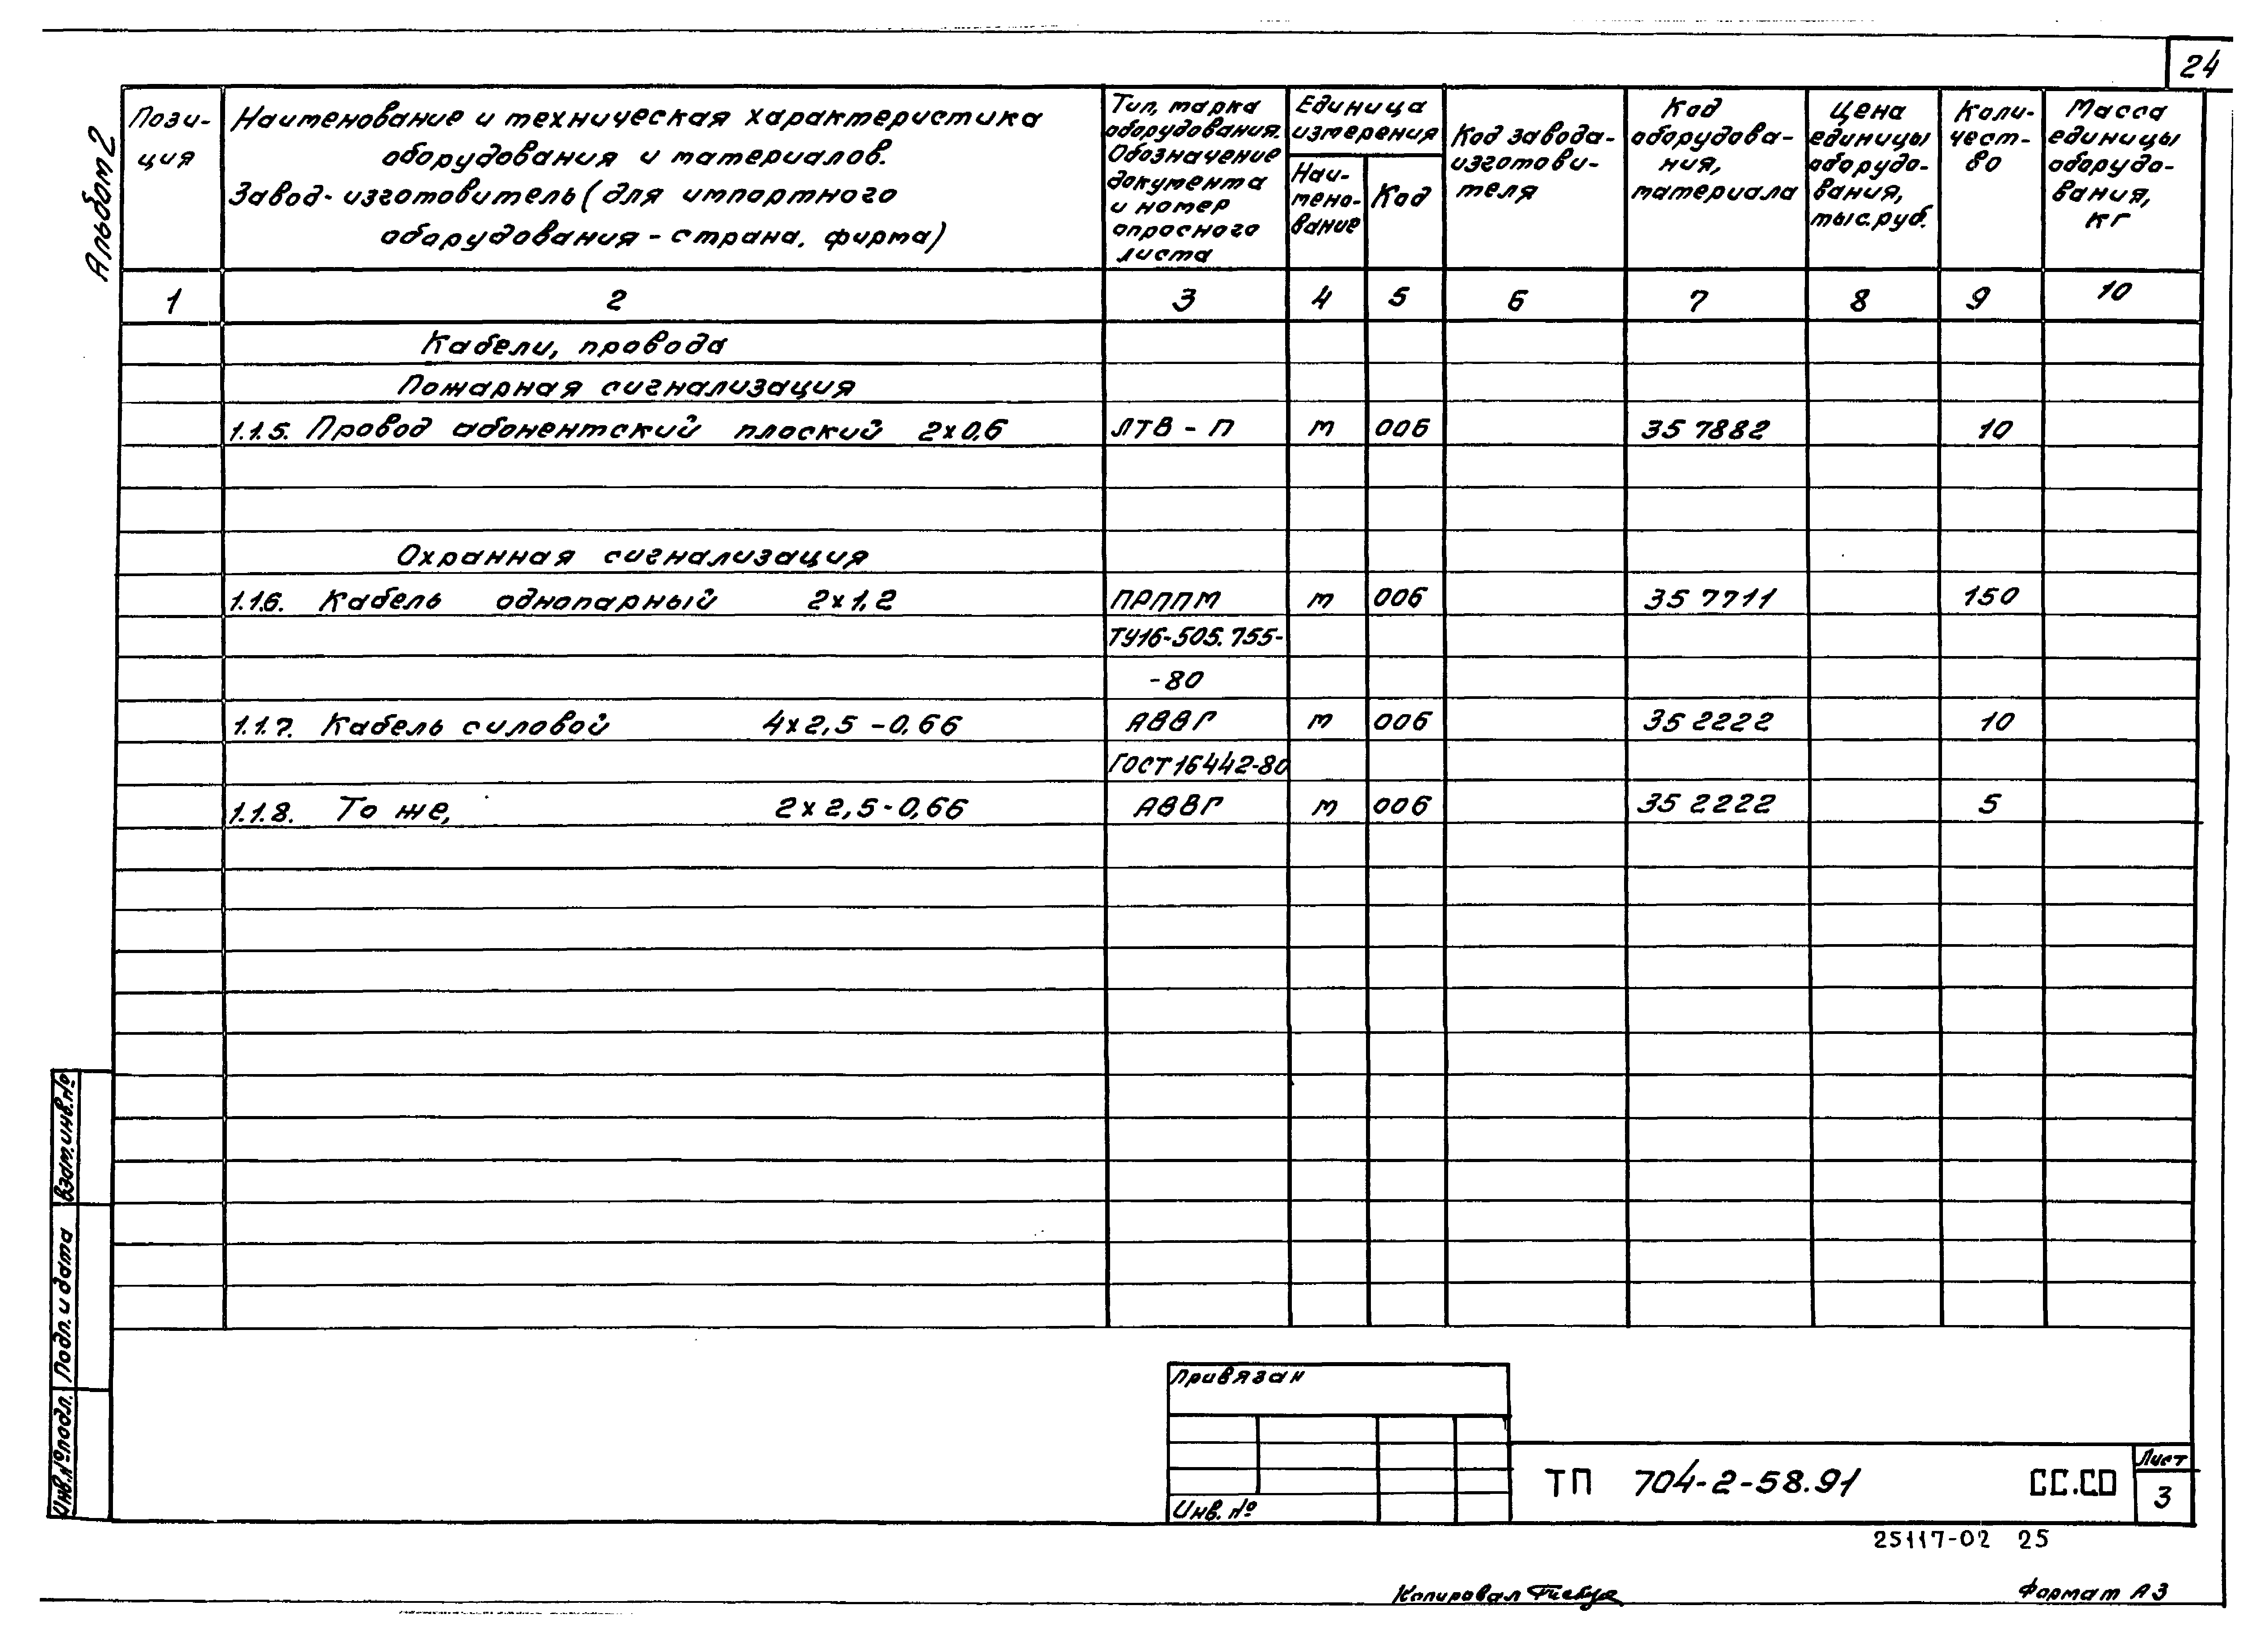 24
Альбом 2
Пози-
ция
Наименование и техническая характеристика
оборудования и материалов.
Завод-изготовитель (для импортного
оборудования - страна, фирма)
Тип, марка
оборудования.
Обозначение
документа
и номер
опросного
листа
Единица
измерения
Наи-
мено-
вание
Код
Код завода-
изготови-
теля
Код
оборудова-
ния,
материала
Цена
единицы
оборудо-
вания,
тыс.руб.
Коли-
чест-
во
Масса
единицы
оборудо-
вания,
кг
1 2 3 4 5 6 7 8 9 10
Кабели, провода
Пожарная сигнализация
1.1.5. Провод абонентский плоский 2х0,6 ЛТВ - П м 006 35 7882 10
Охранная сигнализация
1.1.6. Кабель однопарный 2х1,2 ПРППМ м 006 35 7711 150
ТУ16-505.755-
-80
1.1.7. Кабель силовой 4х2,5 -0,66 АВВГ м 006 35 2222 10
ГОСТ 16442-80
1.1.8. То же, 2х2,5-0,66 АВВГ м 006 35 2222 5
Взам.инв.№
Подп. и дата
Инв.№подл.
Привязан
Инв. №
ТП 704-2-58.91 СС.СО
Лист
3
25117-02 25
Копировал
Формат А3